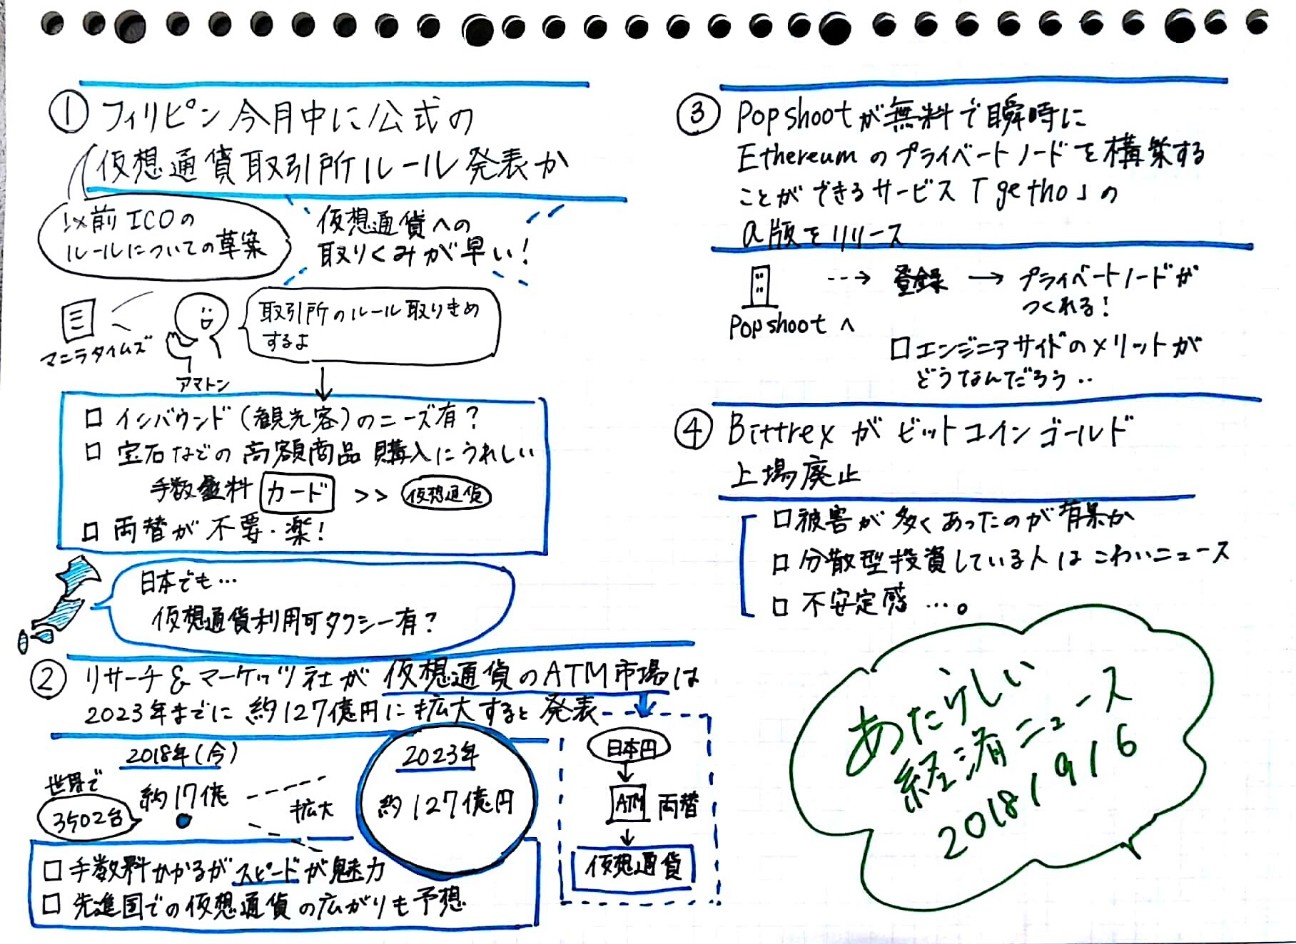 ① フィリピン今月中に公式の
仮想通貨取引所ルール発表か
以前ICOの
ルールについての草案
仮想通貨への
取りくみが早い!
マニラタイムズ
アマトン
取引所のルール取りきめ
するよ
□ インバウンド(観光客)のニーズ有?
□ 宝石などの高額商品購入にうれしい
手数料 カード >> 仮想通貨
□ 両替が不要・楽!
日本でも…
仮想通貨利用可タクシー有?
② リサーチ&マーケッツ社が 仮想通貨のATM市場は
2023年までに約127億円に拡大すると発表
2018年(今)
世界で
3502台
約17億
拡大
2023年
約127億円
日本円
ATM 両替
仮想通貨
□ 手数料かかるがスピードが魅力
□ 先進国での仮想通貨の広がりも予想
③ Popshootが無料で瞬時に
Ethereumのプライベートノードを構築する
ことができるサービス「getho」の
α版をリリース
Popshootへ
登録 → プライベートノードが
つくれる!
□エンジニアサイドのメリットが
どうなんだろう‥
④ Bittrexがビットコインゴールド
上場廃止
□被害が多くあったのが背景か
□分散型投資している人はこわいニュース
□ 不安定感…。
あたらしい
経済ニュース
2018/9/6